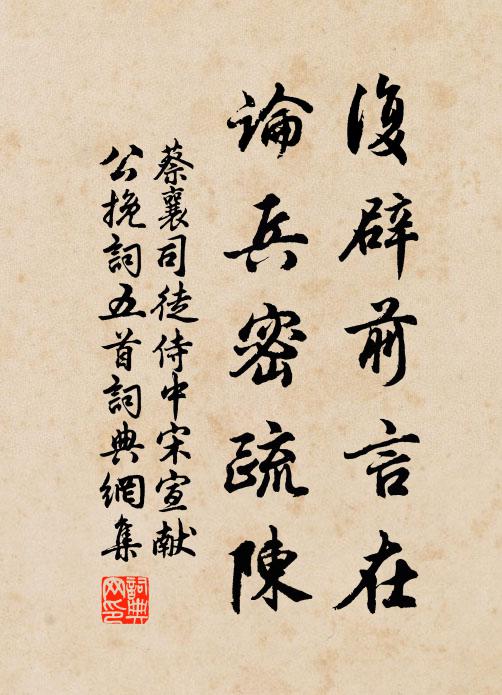 復辟前言在
論兵密疏陳
蔡襄司徒侍中宋宣献
公挽詞五首詞典網集
詞典网印